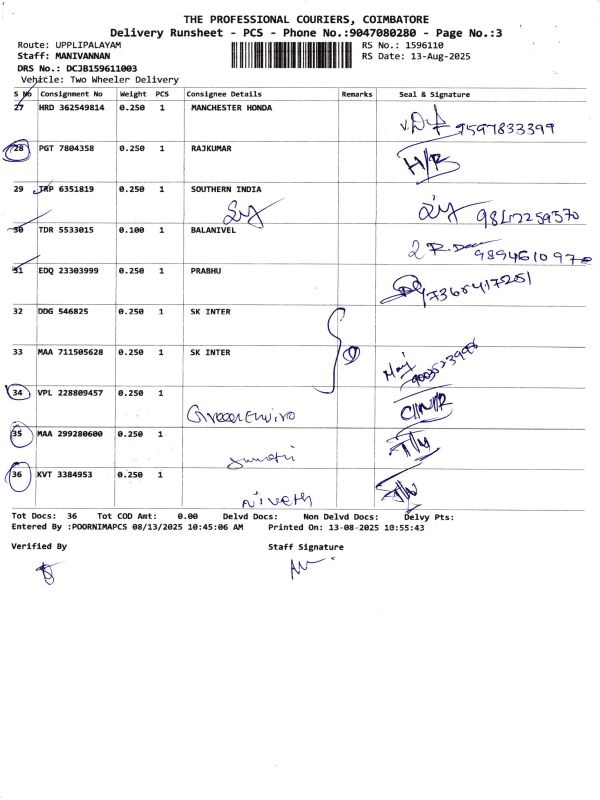 THE PROFESSIONAL COURIERS, COIMBATORE
Delivery Runsheet - PCS - Phone No.:9047080280 - Page No.:3
Route: UPPLIPALAYAM RS No.: 1596110
Staff: MANIVANNAN RS Date: 13-Aug-2025
DRS No.: DCJB159611003
Vehicle: Two Wheeler Delivery
S No Consignment No Weight PCS Consignee Details Remarks Seal & Signature
27 HRD 362549814 0.250 1 MANCHESTER HONDA
9597833399
28 PGT 7804358 0.250 1 RAJKUMAR
29 TRP 6351819 0.250 1 SOUTHERN INDIA
30 TDR 5533015 0.100 1 BALANIVEL
31 EDQ 23303999 0.250 1 PRABHU
32 DDG 546825 0.250 1 SK INTER
33 MAA 711505628 0.250 1 SK INTER
34 VPL 228809457 0.250 1
35 MAA 299280600 0.250 1
36 KVT 3384953 0.250 1
Tot Docs: 36 Tot COD Amt: 0.00 Delvd Docs: Non Delvd Docs: Delvy Pts:
Entered By :POORNIMAPCS 08/13/2025 10:45:06 AM Printed On: 13-08-2025 10:55:43
Verified By Staff Signature